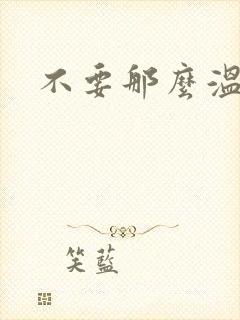 不要那麼溫
笑藍